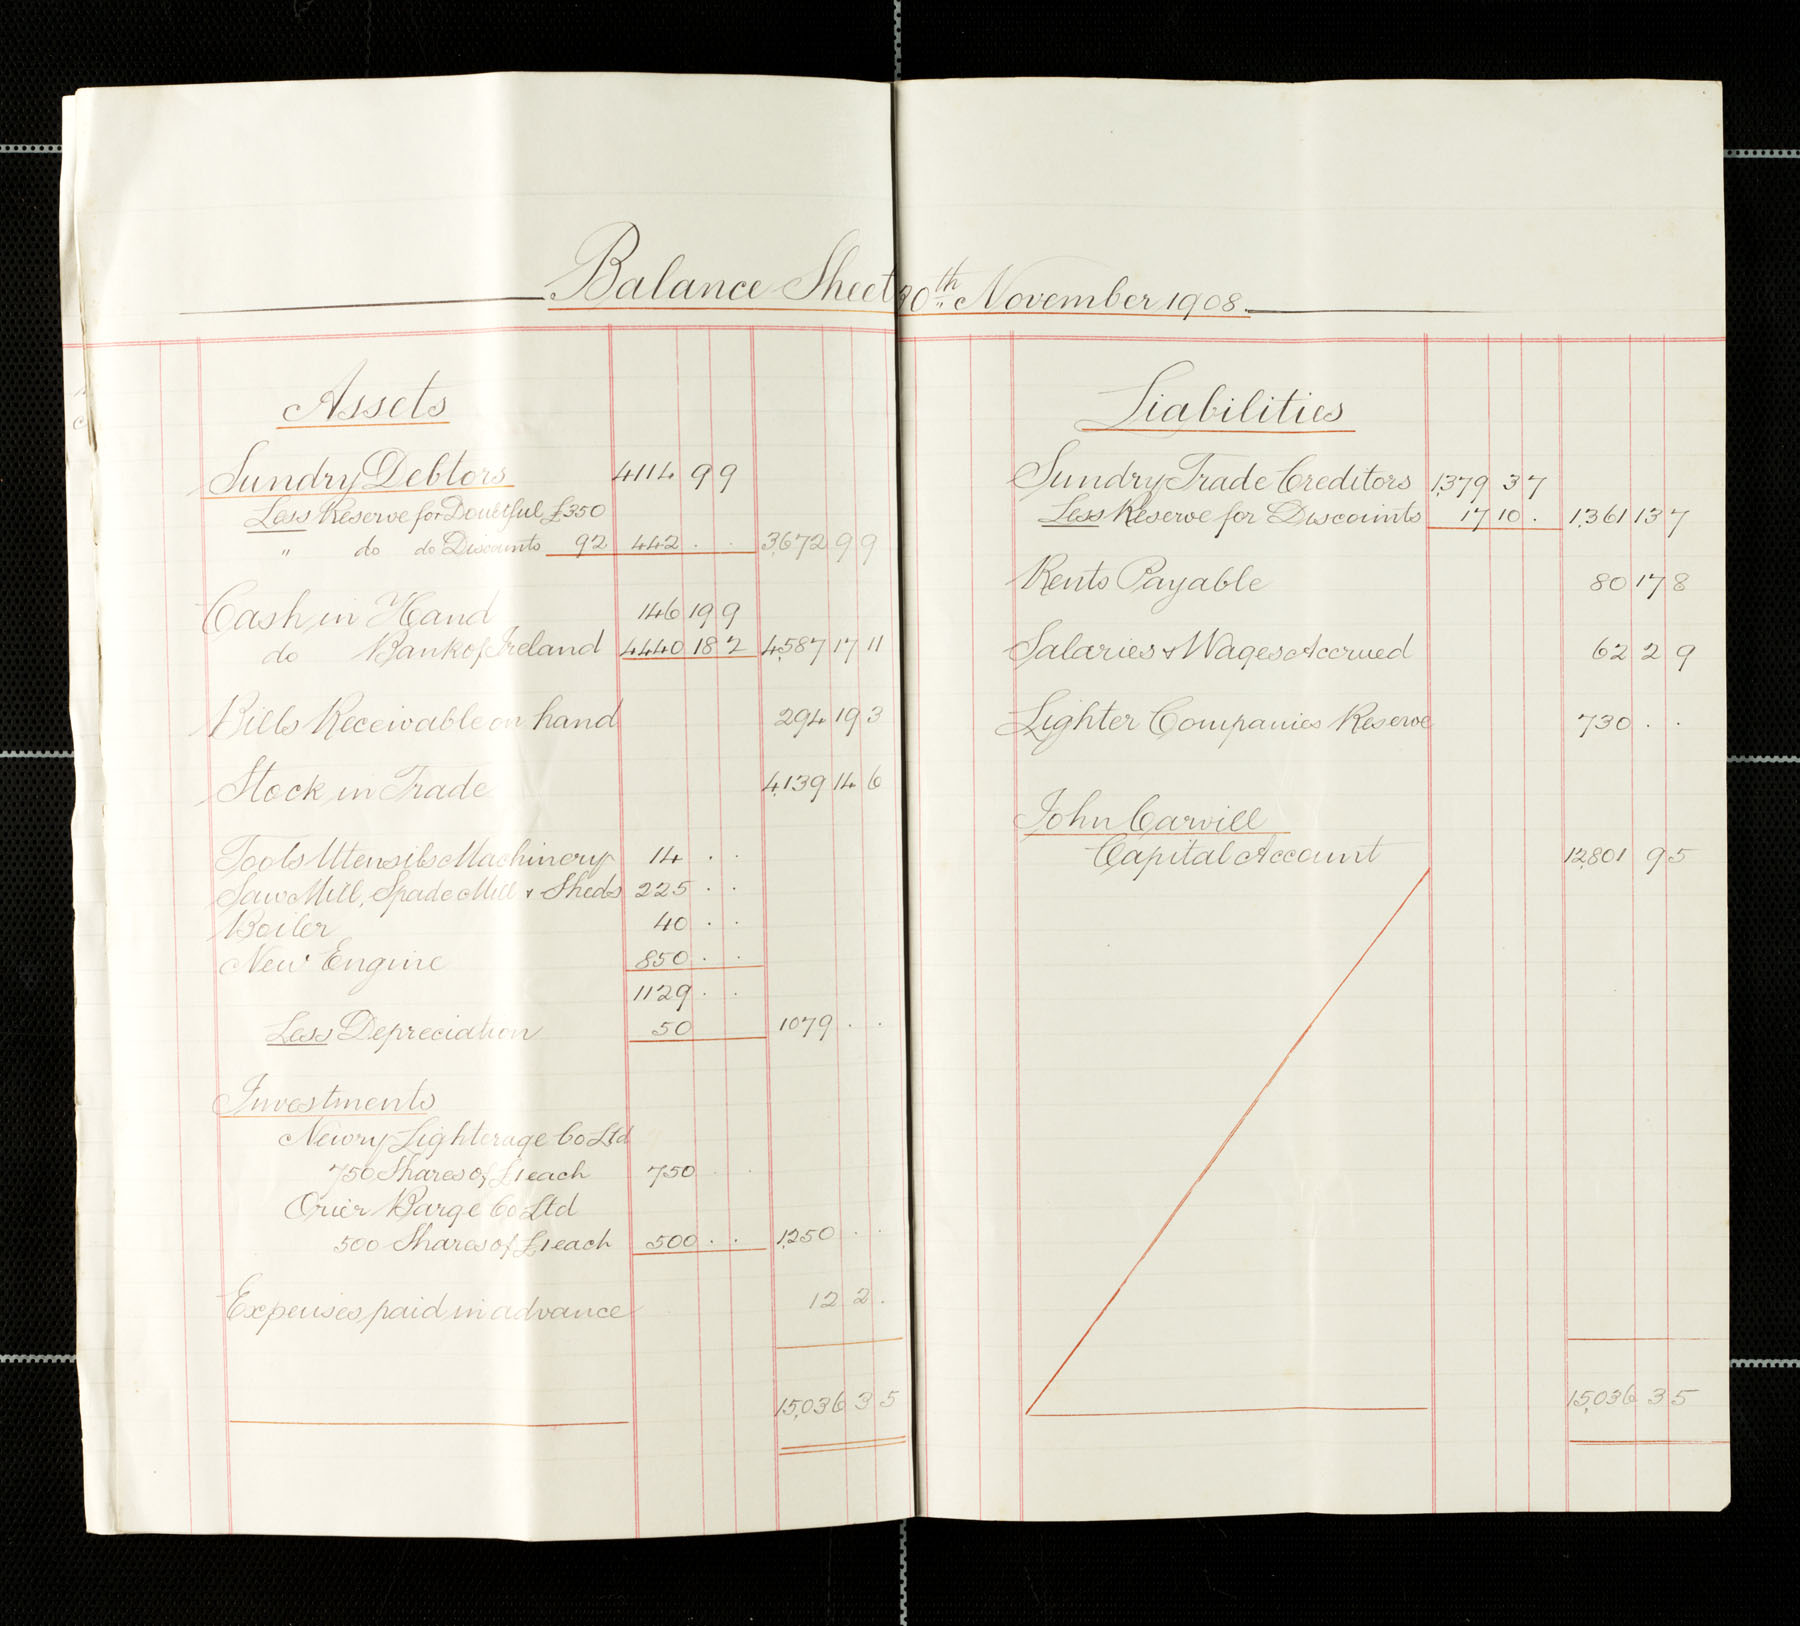 Balance Sheet 30th November 1908.
Assets
Sundry Debtors 4114 9 9
Less Reserve for Doubtful £350
" do do Discounts 92 442 . . 3,672 9 9
Cash in Hand 146 19 9
do Bank of Ireland 4440 18 2 4,587 17 11
Bills Receivable on hand 294 19 3
Stock in Trade 4,139 14 6
Tools Utensils Machinery 14 . .
Saw Mill, Spade Mill & Sheds 225 . .
Boiler 40 . .
New Engine 850 . .
1129 . .
Less Depreciation 50 1079 . .
Investments
Newry Lighterage Co Ltd
750 Shares of £1 each 750 . .
Orior Barge Co Ltd
500 Shares of £1 each 500 . . 1,250 . .
Expenses paid in advance 12 2 .
15,036 3 5
Liabilities
Sundry Trade Creditors 1,379 3 7
Less Reserve for Discounts 17 10 . 1,361 13 7
Rents Payable 80 17 8
Salaries & Wages Accrued 62 2 9
Lighter Companies Reserve 730 . .
John Carvill
Capital Account 12,801 9 5
15,036 3 5